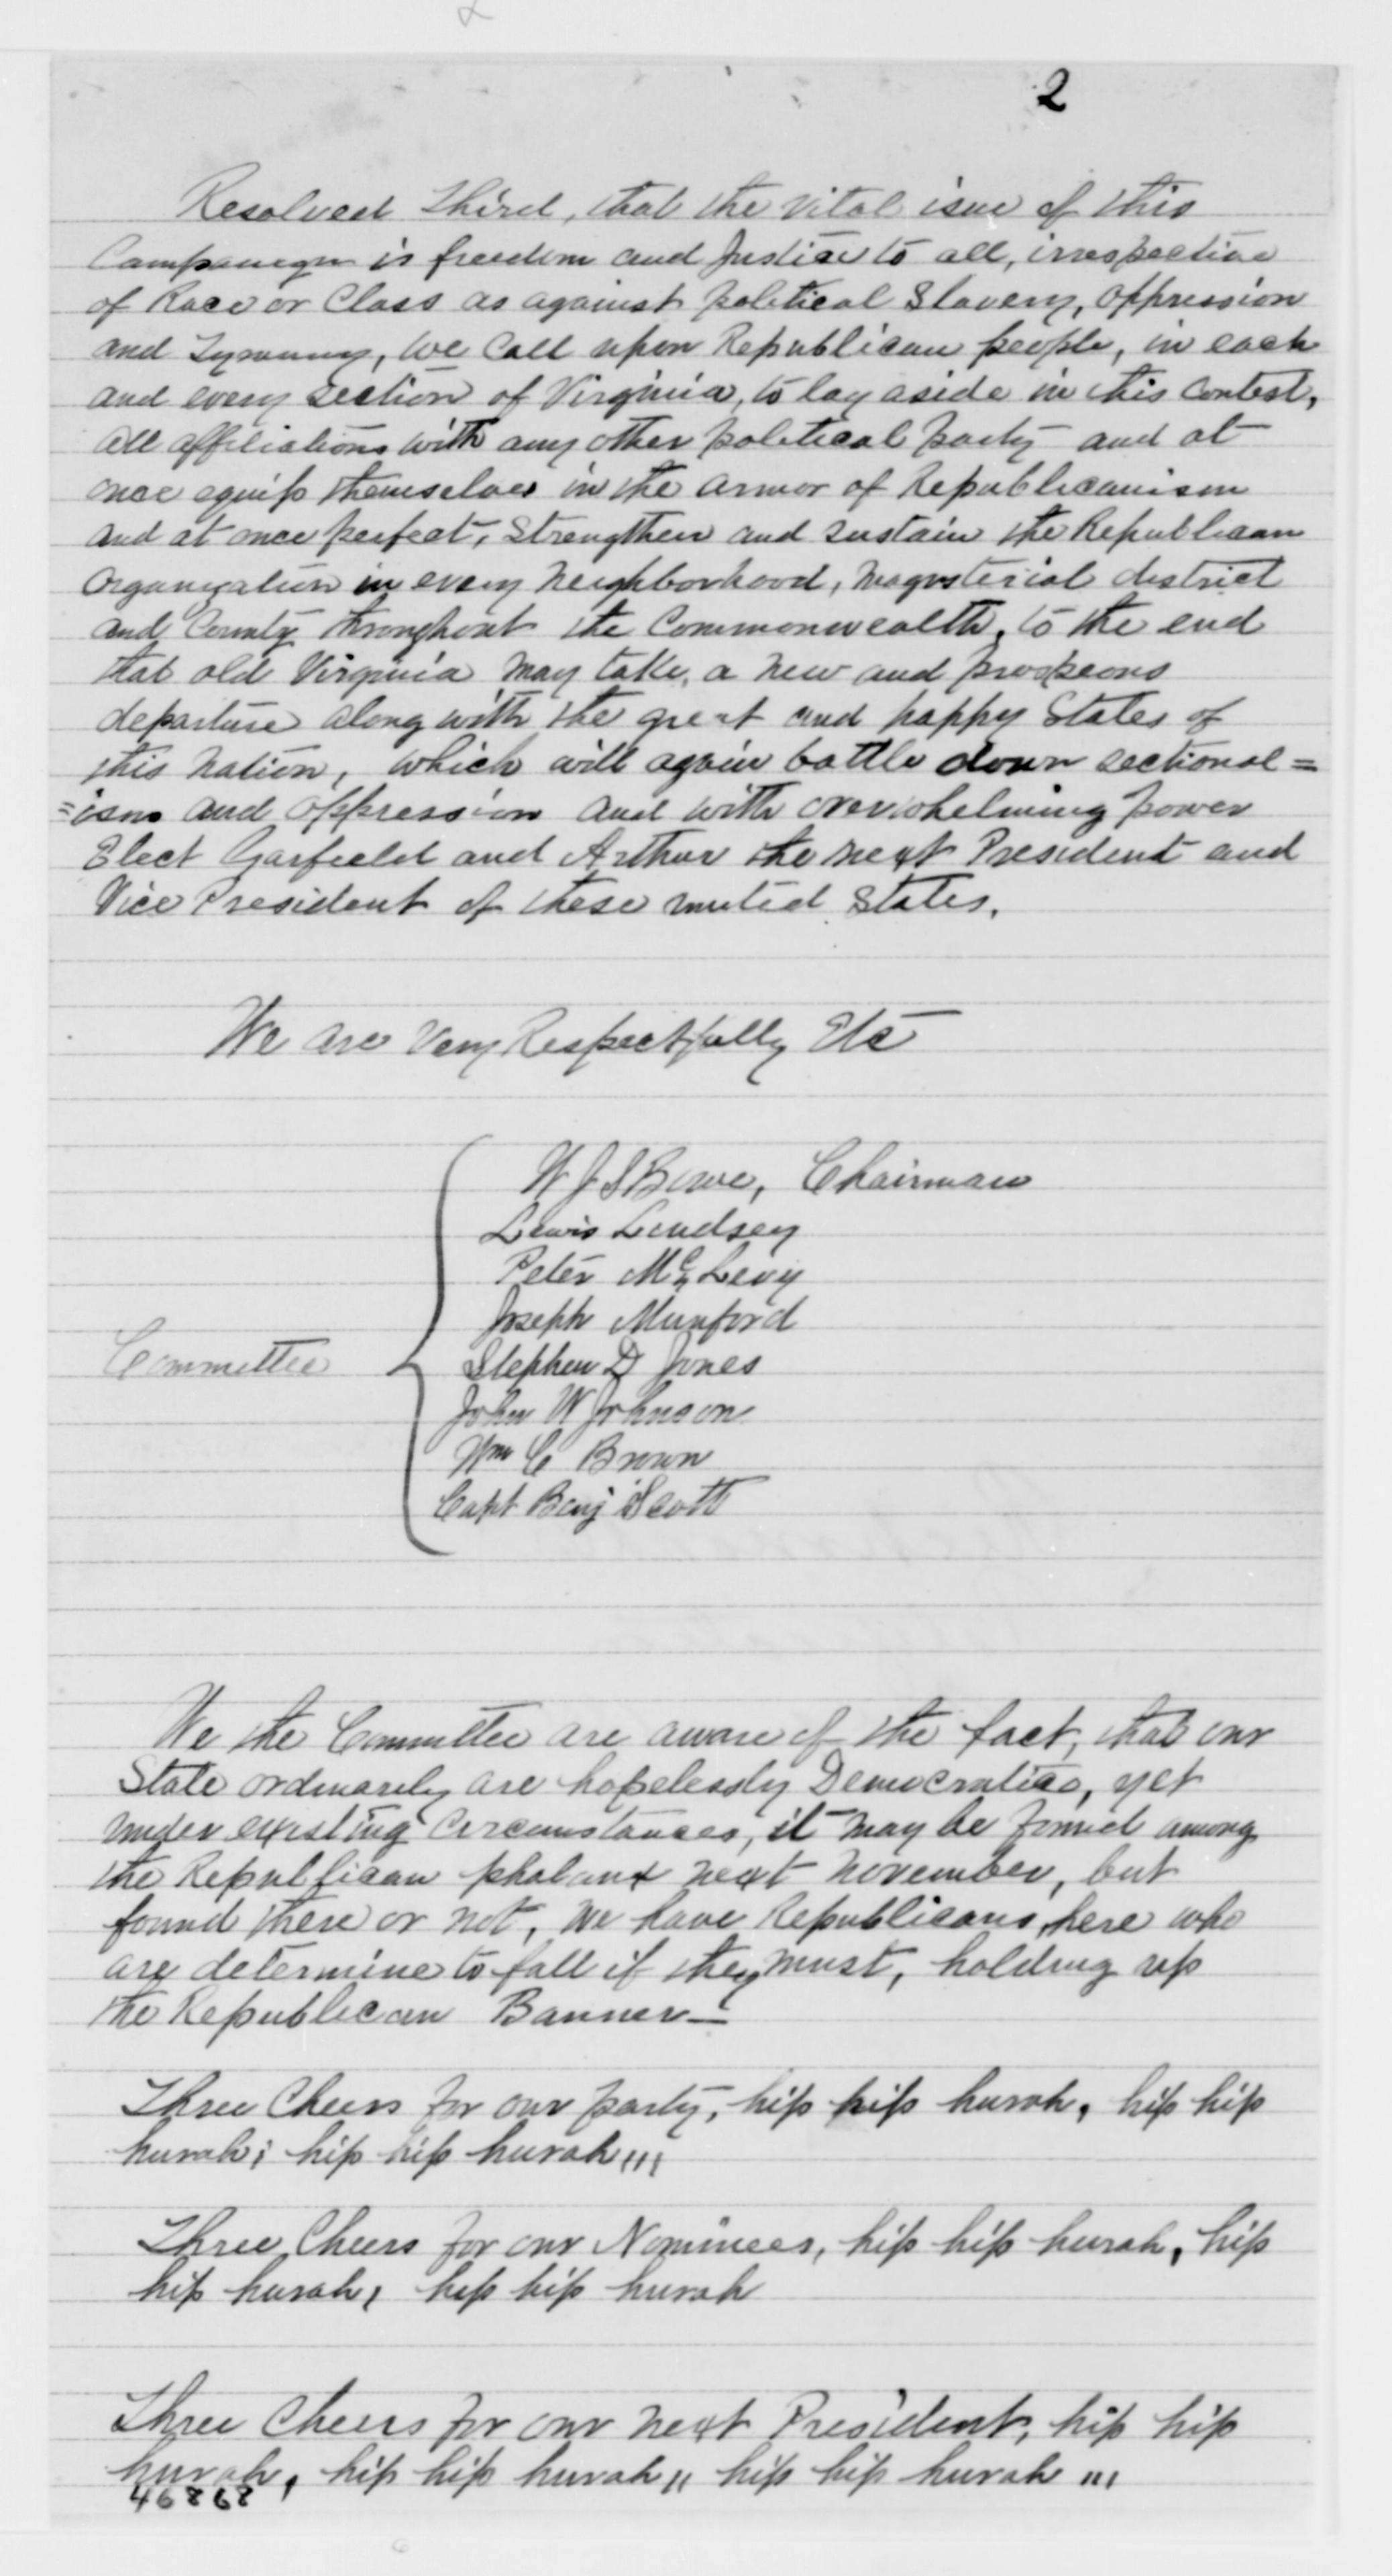 2
Resolved Third, that the vital isue of this
Campauegn is freedom and Justice to all, irrespective
of Race or Class as against political Slavery, oppression
and Tyranny, we Call upon Republican people, in each
and every section of Virginia, to lay aside in this Contest,
all affiliations with any other political party and at
once equip themselves in the armor of Republicanism
and at once perfect, Strengthen and sustain the Republican
Organization in every Neighborhood, Magisterial district
and County throughout the Commonwealth, to the end
that old Virginia may take, a new and
departure along with the great and happy States of
this Nation, which will again battle down sectional=
=ism and oppression and with overwhelming power
Elect Garfield and Arthur the next President and
Vice President of these united States.
We are Very Respectfully Etc
W J S Bowe, Chairman
Lewis Lindsey
Peter Mc Levy
Joseph Munford
Committee
Stephen D Jones
John W Johnson
Wm C Brown
Capt Benj Scott
We the Committee are aware of the fact, that our
State ordinarily are hopelessly Democratic, yet
under existing Circumstances, it may be found among
the Republican phalanx next November, but
found there or not, we have Republicans here who
are determine to fall if they must, holding up
the Republican Banner—
Three Cheers for our party, hip hip hurah, hip hip
hurah; hip hip hurah,,,
Three Cheers for our Nominees, hip hip hurah, hip
hip hurah, hip hip hurah
Three Cheers for our next President, hip hip
hurah, hip hip hurah,, hip hip hurah ,,,
46868